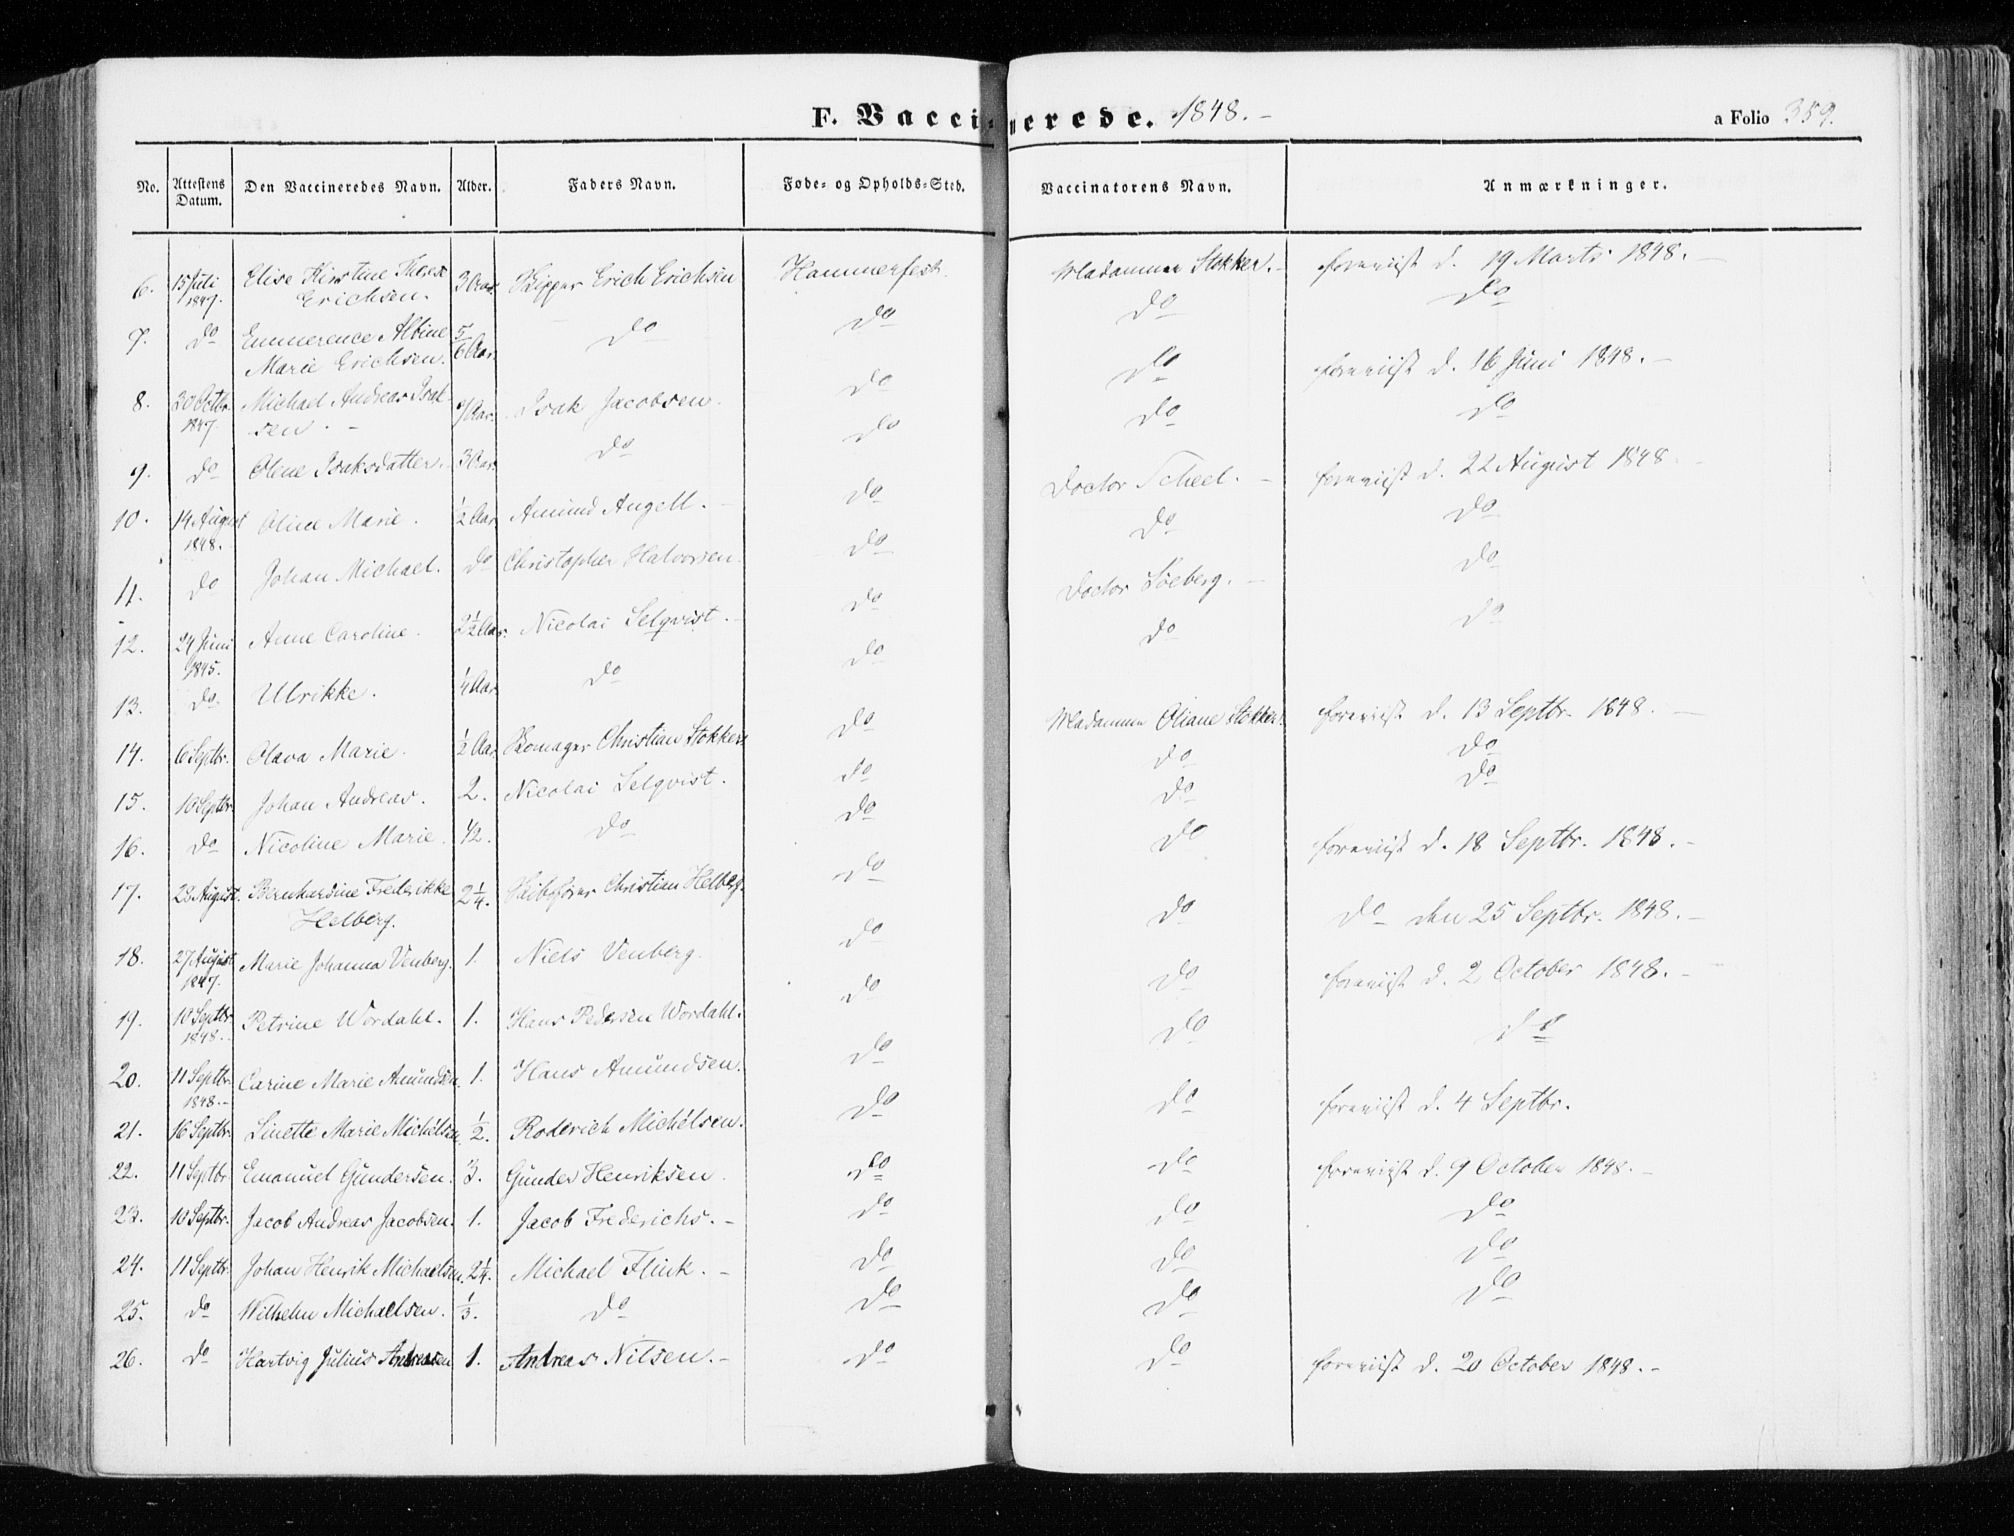 F. Vaccinerede. 1848. -
a Folio 359.
No. Attestens Datum. Den Vaccineredes Navn. Alder. Faders Navn. Føde- og Opholds-Sted. Vaccinatorens Navn. Anmærkninger.
6. 15 Juli 1847. Elise Kirstine Therese Erichsen. 3 Aar. Skipper Erich Erichsen Hammerfest. Madamme Stokker. - foreviist d. 19 Marts 1848. -
7. do Emmerence Albine Marie Erichsen. 5/6 Aar. do do do do
8. 30 Octbr. 1847. Michael Andreas Isaksen. - 7 Aar. Isak Jacobsen. do do foreviist d. 16 Juni 1848. -
9. do Olene Isaksdatter. 3 Aar. do do do do
10. 14 August 1848. Oline Marie. 1/2 Aar Amund Angell. - do Doctor Scheel. - foreviist d. 22 August 1848.
11. do Johan Michael. do Christopher Halvorsen. do do do
12. 24 Juni 1845. Anne Caroline. 2 1/2 Aar. Nicolai Selqvist. - do Doctor Søeberg. - do
13. do Ulrikke. 1/4 Aar do do do do
14. 6 Septbr. Olava Marie. 1/2 Aar Skomager Christian Stokker do Madamme Oliane Stokker. foreviist d. 13 Septbr. 1848. -
15. 10 Septbr. Johan Andreas. 2. Nicolai Selqvist. do do do
16. do Nicoline Marie. 1/2. do do do do
17. 28 August. Bernhardine Frederikke Helberg. 2 1/4. Skibsfører Christian Helberg. do do foreviist d. 18 Septbr. 1848. -
18. 27 August 1847. Marie Johanna Venberg. 1. Niels Venberg. do do do den 25 Septbr. 1848. -
19. 10 Septbr. 1848. Petrine Wordahl. 1. Hans Pedersen Wordahl. do do foreviist d. 2 October 1848. -
20. 11 Septbr. 1848. - Carine Marie Amundsen. 1. Hans Amundsen. do do do
21. 16 Septbr. Linette Marie Michélsen. 1/2. Roderich Michélsen. do do foreviist d. 4 Septbr.
22. 11 Septbr Emanuel Gundersen. 3. Gunder Henriksen. do do foreviist d. 9 October 1848. -
23. 10 Septbr. Jacob Andreas Jacobsen. 1. Jacob Frederichs. - do do do
24. 11 Septbr. Johan Henrik Michaelsen. 2 1/4. Michael Flink. - do do do
25. do Wilhelm Michaelsen. 1/3. do do do do
26. do Hartvig Julius Andreasen 1. Andreas Nilsen. - do do foreviist d. 20 October 1848. -